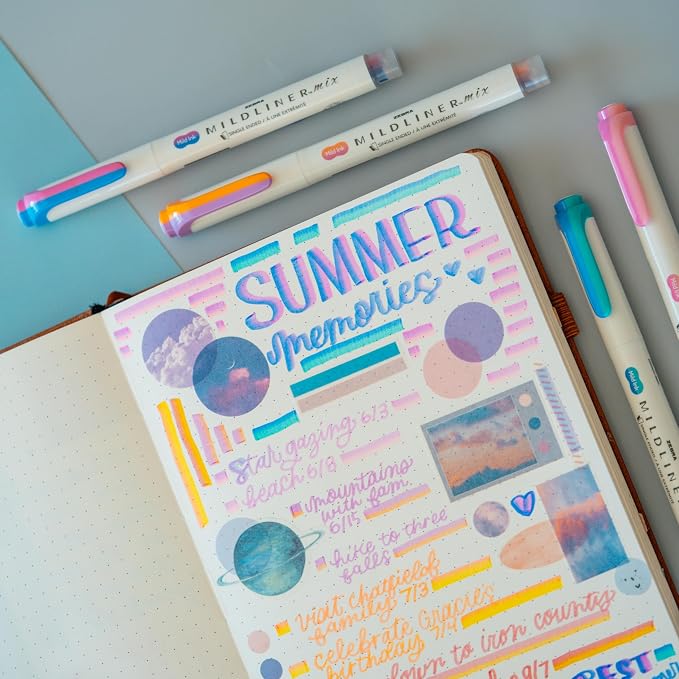 Mild Ink ZEBRA MILDLINER mix
SINGLE ENDED / À UNE EXTRÉMITÉ
Mild Ink ZEBRA MILDLINER mix
SINGLE ENDED / À UNE EXTRÉMITÉ
Mild Ink ZEBRA MILD
Mild
SUMMER
memories
Star gazing 6/3
beach 6/8
mountains
with fam.
6/15
hike to three
falls
visit chatfield
family 7/3
celebrate Gracies
birthday 7/9
down to iron county
9/7
BEST